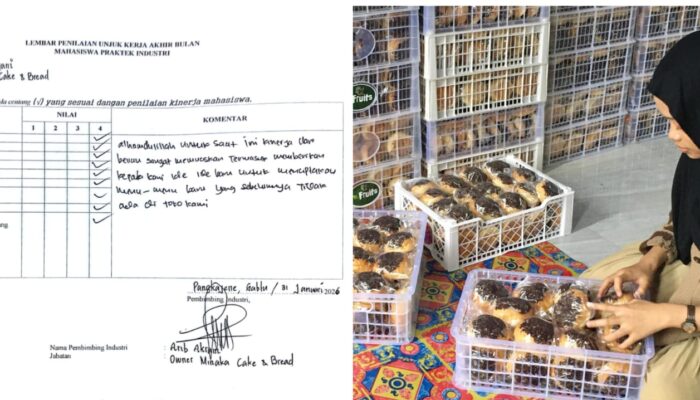 LEMBAR PENILAIAN UNJUK KERJA AKHIR BULAN
MAHASISWA PRAKTEK INDUSTRI
Cake & Bread
centang (√) yang sesuai dangan penilaian kinerja mahasiswa.
NILAI
KOMENTAR
1 2 3 4
alhamdulillah untuk saat ini kinerja dari
beliau sangat memuaskan Termasuk memberikan
kepada kami ide ide baru untuk menciptakan
menu-menu baru yang sebelumnya Tidak
ada di toko kami
Pangkajene, Sabtu / 31 Januari 2026
Pembimbing Industri,
Nama Pembimbing Industri : Arib
Jabatan : Owner Cake & Bread
Fruits
Fruits